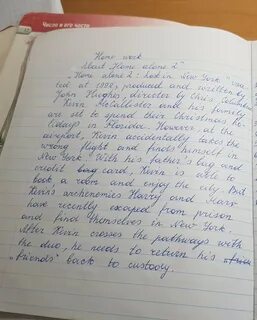 Число и его части
Home work
About „Home alone 2"
„Home alone 2: Lost in New York" crea-
ted at 1992, produced and written by
John Hughes, director by Chris Columbus
Kevin McCallister and his family
are set to spend their Christmas ho-
lidays in Florida. However, at the
airport, Kevin accidentally takes the
wrong flight and finds himself in
New York. With his father's bag and
credit card, Kevin is able to
book a room and enjoy the city. But
Kevin's archenemies Harry and Marv
have recently escaped from prison
and find themselves in New York.
After Kevin crosses the pathways with
the duo, he needs to return his
„friends" back to custody.